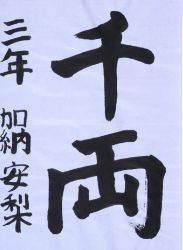 千両
三年 加納安梨